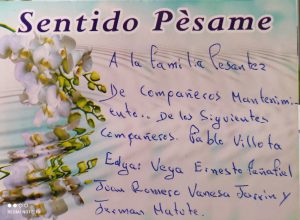 Sentido Pèsame
A la familia Pesantez
De compañeros Mantenimi
ento.. De los Siguientes
compañeros. Pablo Villota
Edgar Vega Ernesto Peñafiel
Juan Romero Vanesa Jarrin y
German Matute.